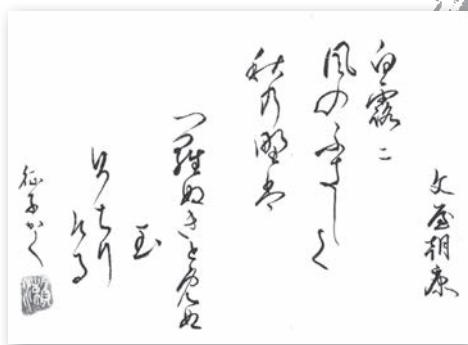 文屋朝康
白露二
風のふきしく
秋乃野盤
つ羅ぬきとめぬ
玉
そちり
ける
かく